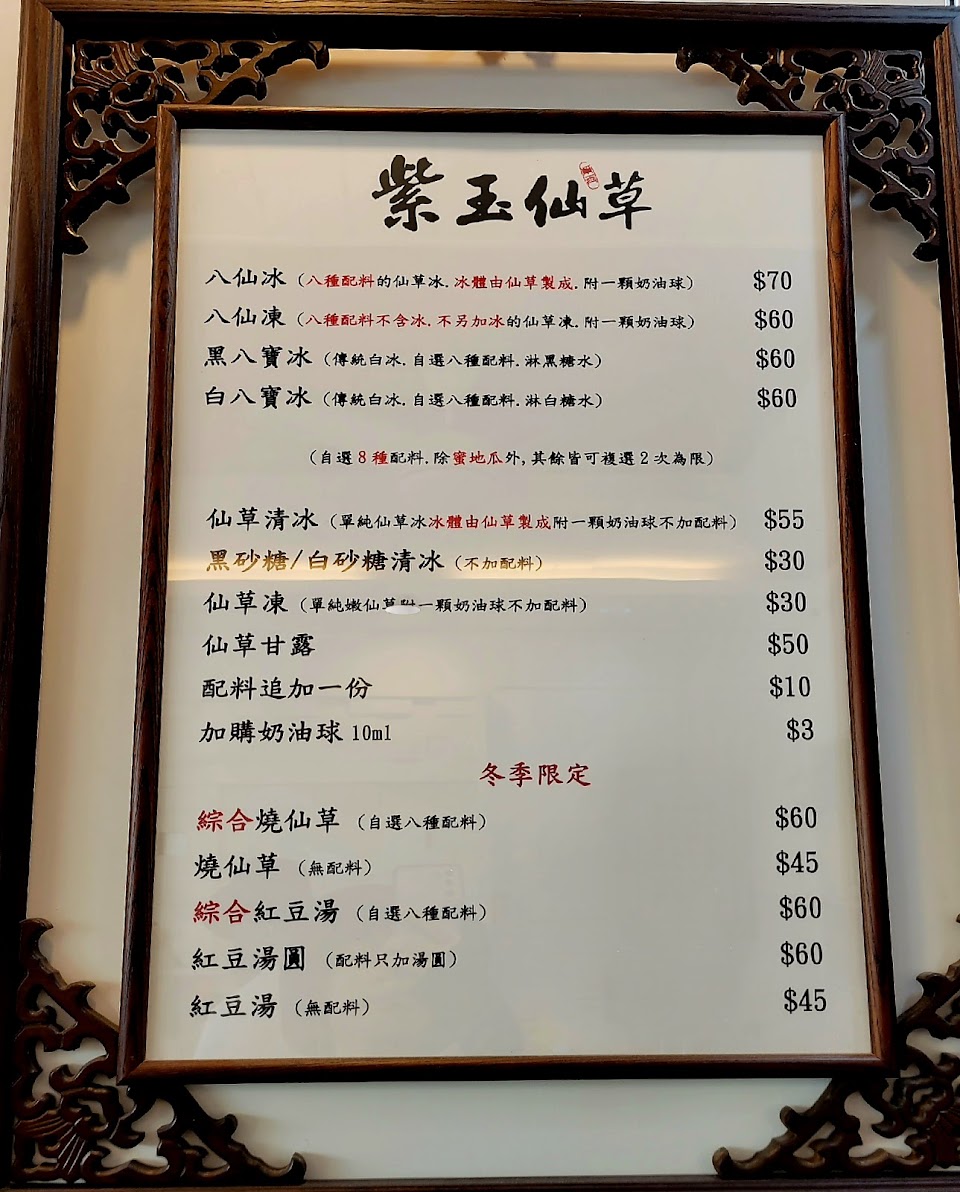 紫玉仙草
八仙冰 (八種配料的仙草冰.冰體由仙草製成.附一顆奶油球) $70
八仙凍 (八種配料不含冰.不另加冰的仙草凍.附一顆奶油球) $60
黑八寶冰 (傳統白冰.自選八種配料.淋黑糖水) $60
白八寶冰 (傳統白冰.自選八種配料.淋白糖水) $60
(自選8種配料.除蜜地瓜外,其餘皆可複選2次為限)
仙草清冰 (單純仙草冰冰體由仙草製成附一顆奶油球不加配料) $55
黑砂糖/白砂糖清冰 (不加配料) $30
仙草凍 (單純嫩仙草附一顆奶油球不加配料) $30
仙草甘露 $50
配料追加一份 $10
加購奶油球 10ml $3
冬季限定
綜合燒仙草 (自選八種配料) $60
燒仙草 (無配料) $45
綜合紅豆湯 (自選八種配料) $60
紅豆湯圓 (配料只加湯圓) $60
紅豆湯 (無配料) $45